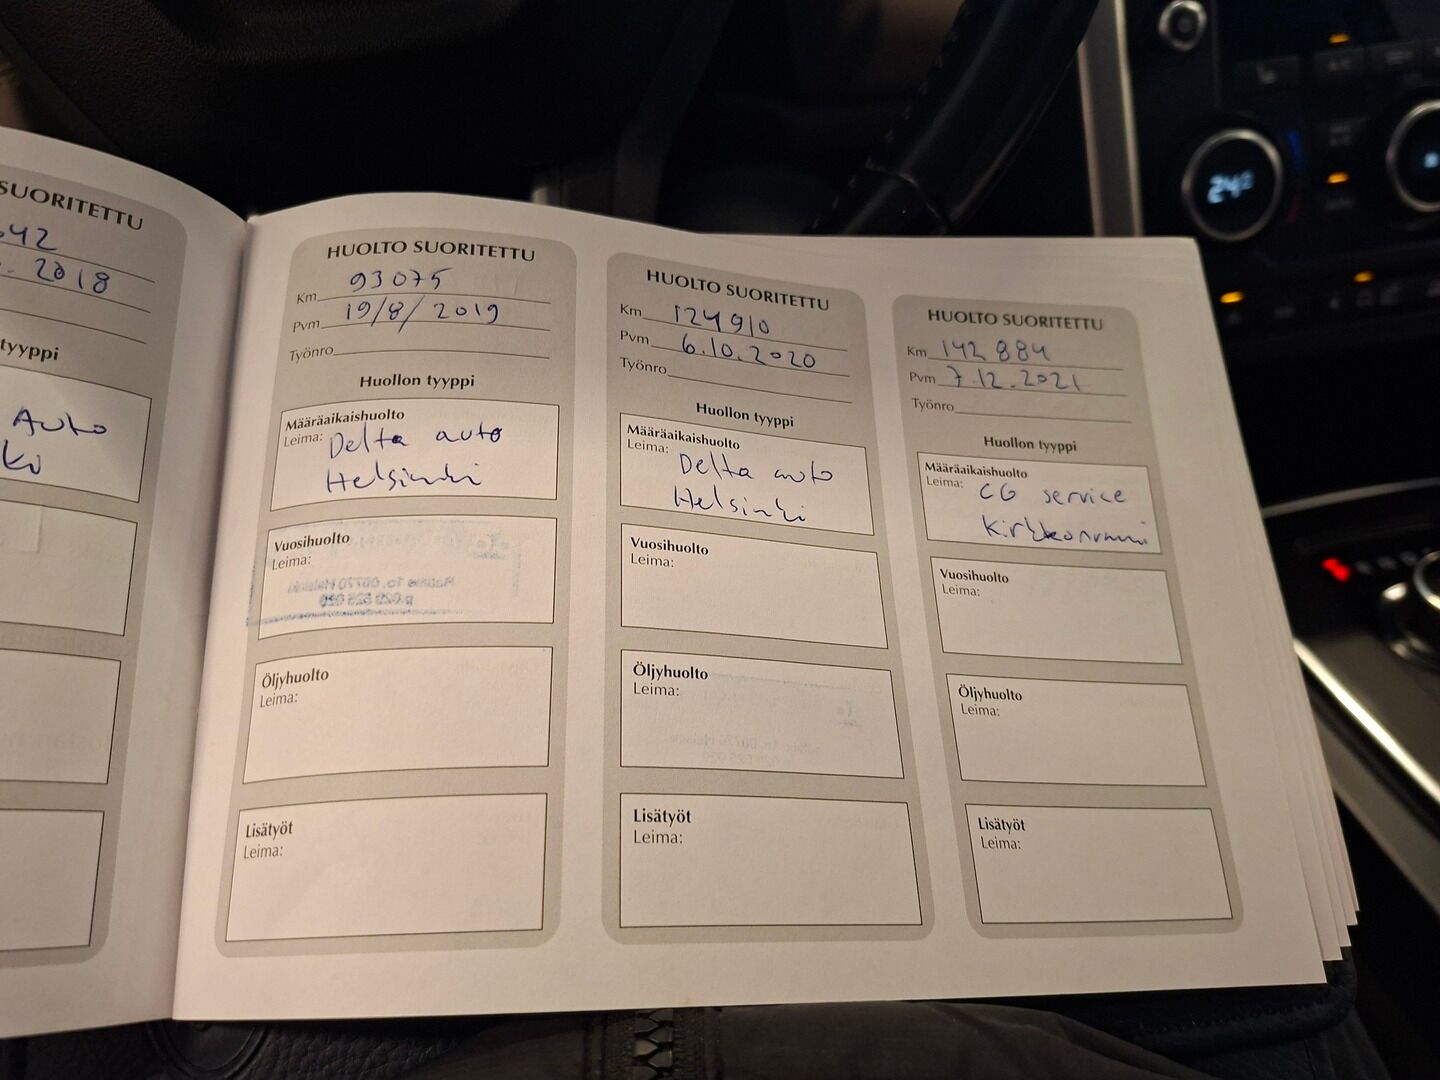 SUORITETTU
642
2018
tyyppi
Auto
ki
HUOLTO SUORITETTU
Km 93075
Pvm 19/8/2019
Työnro
Huollon tyyppi
Määräaikaishuolto
Leima: Delta auto
Helsinki
Vuosihuolto
Leima:
Öljyhuolto
Leima:
Lisätyöt
Leima:
HUOLTO SUORITETTU
Km 124910
Pvm 6.10.2020
Työnro
Huollon tyyppi
Määräaikaishuolto
Leima: Delta auto
Helsinki
Vuosihuolto
Leima:
Öljyhuolto
Leima:
Lisätyöt
Leima:
HUOLTO SUORITETTU
Km 142 884
Pvm 7.12.2021
Työnro
Huollon tyyppi
Määräaikaishuolto
Leima: CG service
Kirkkonummi
Vuosihuolto
Leima:
Öljyhuolto
Leima:
Lisätyöt
Leima:
24.0